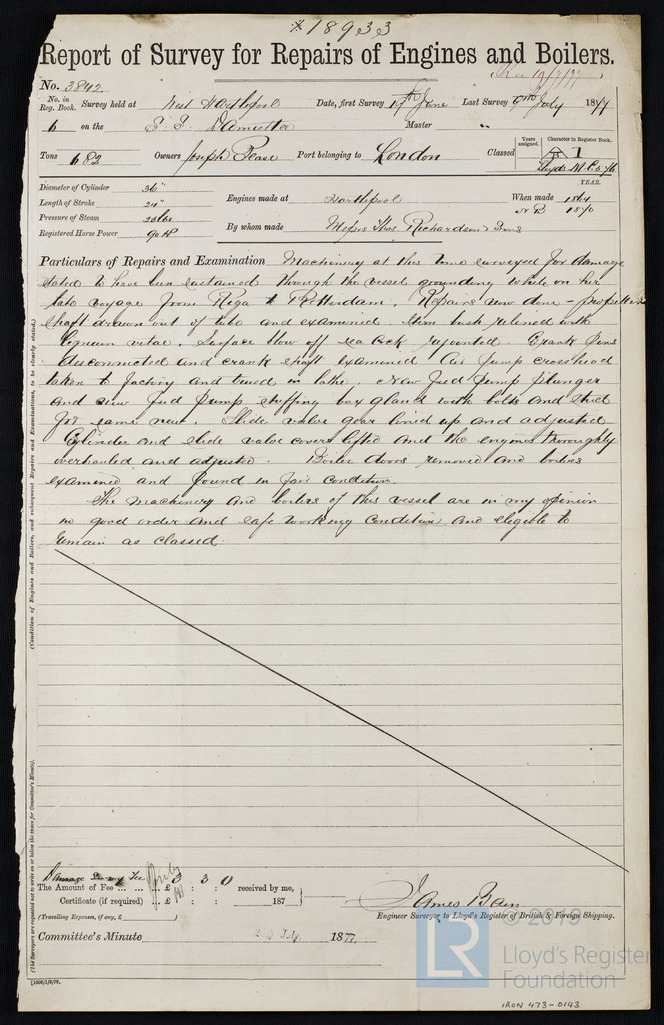 *18933
Report of Survey for Repairs of Engines and Boilers.
Rec 10/7/77
No. 3842
No. in Reg. Book. Survey held at West Hartlepool Date, first Survey 19th June Last Survey 9th July 1877
6 on the S. S. Damietta Master "
Tons 682 Owners Joseph Pease Port belonging to London Classed
Years assigned. Character in Register Book.
1
Lloyds M.C. 5/76
YEAR.
Diameter of Cylinder 36"
Length of Stroke 24"
Pressure of Steam
Registered Horse Power 90 HP
Engines made at Hartlepool When made 1864
NB 1870
By whom made Messrs Thos Richardson & Sons
Particulars of Repairs and Examination Machinery at this time surveyed for damage
stated to have been sustained through the vessel grounding while on her
late voyage from Riga to Rotterdam. Repairs now done – propeller
shaft drawn out of tube and examined. Stern bush relined with
lignum vitae. Surface blow off sea cock rejointed. Crank pins
disconnected and crank shaft examined Air Pump crosshead
taken to factory and trued in lathe. New feed Pump plunger
and new feed pump stuffing box gland with bolts and stud
for same new. Slide valve gear lined up and adjusted
Cylinder and slide valve covers lifted and the engines thoroughly
overhauled and adjusted. Boiler doors removed and boilers
examined and found in fair condition.
The machinery and boilers of this vessel are in my opinion
in good order and safe working condition and eligible to
remain as classed
(Condition of Engines and Boilers, and subsequent Repairs and Examinations, to be clearly stated.)
(The Surveyors are requested not to write on or below the space for Committee's Minute).
Damage Survey Fee
The Amount of Fee ... ... £ 3 : 3 : 0 received by me,
Certificate (if required) ... £ : : 187
(Travelling Expenses, if any, £ )
James Bain
Engineer Surveyor to Lloyd's Register of British & Foreign Shipping.
Committee's Minute July 1877.
[1000/1/9/76.
© 2019
LR
Lloyd's Register
Foundation
IRON 473-0143